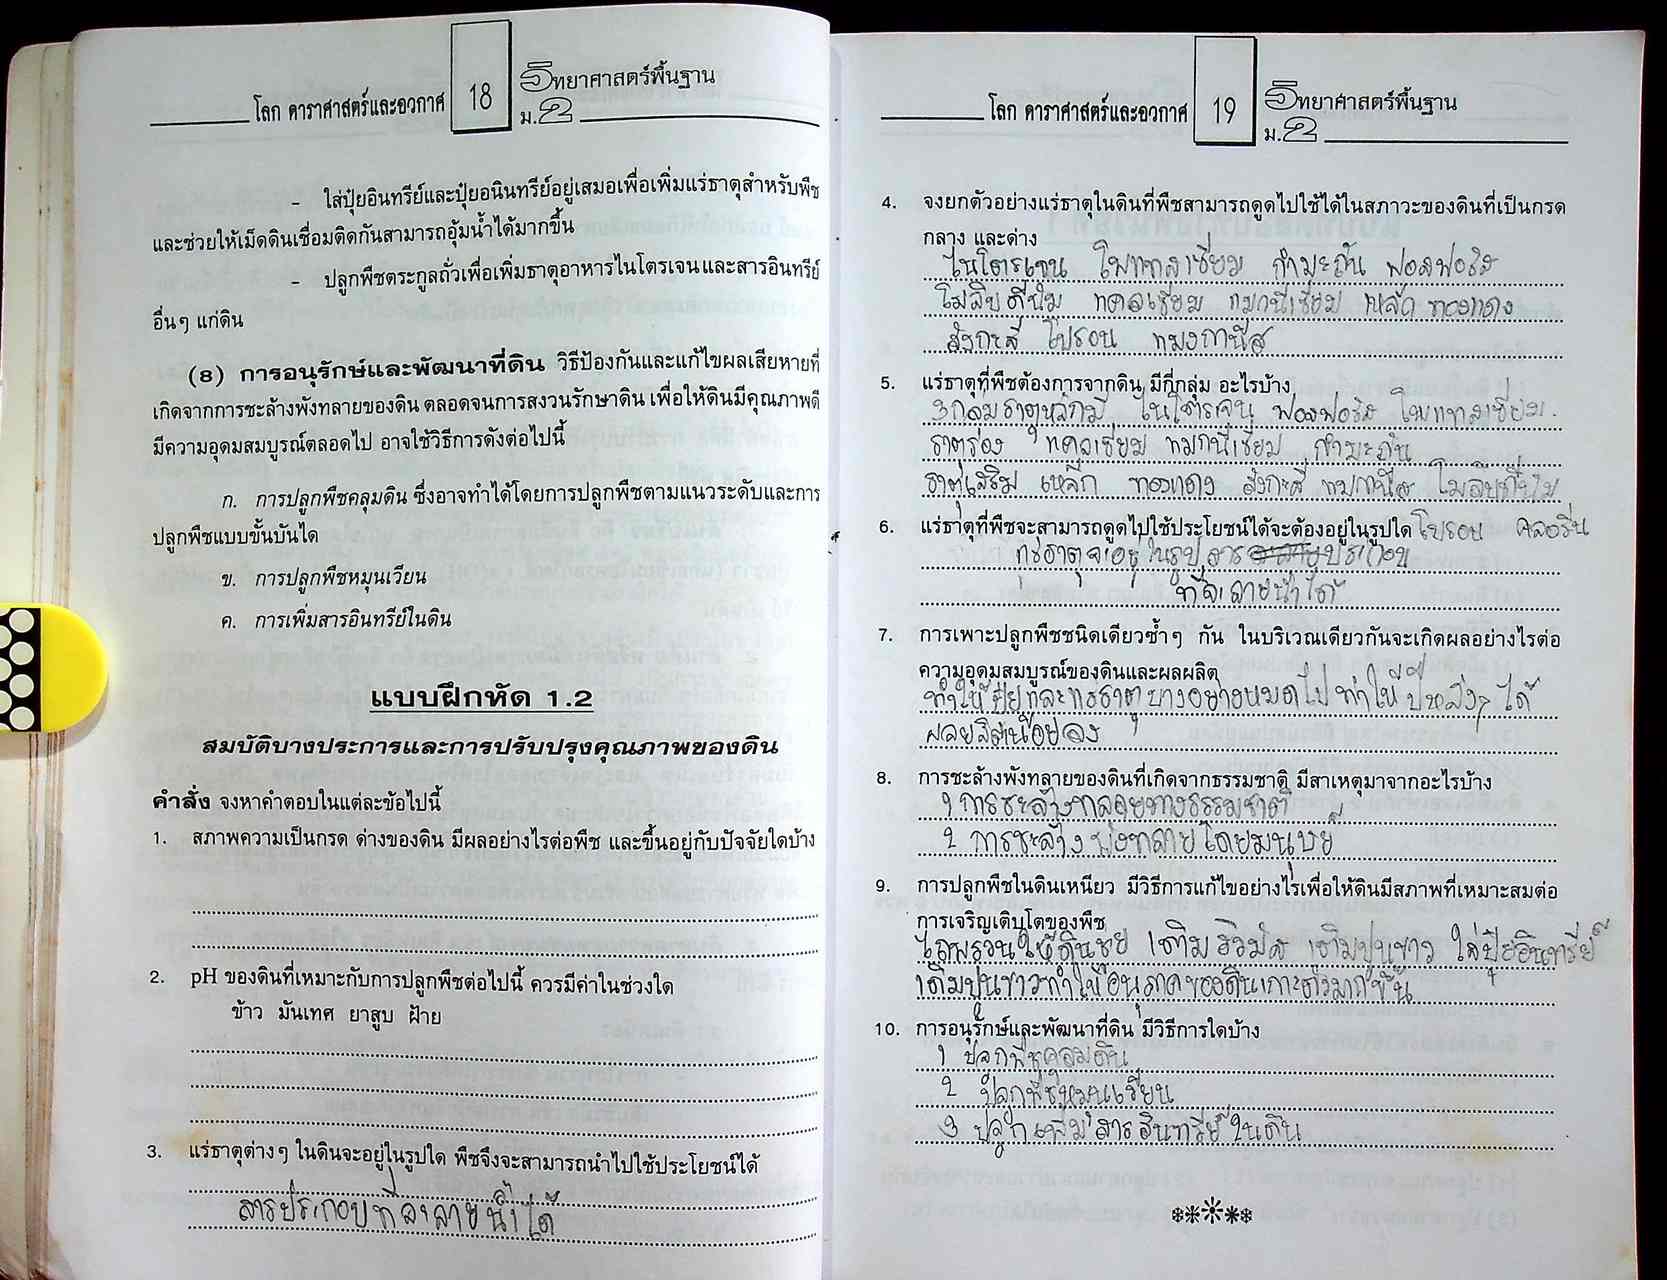 โลก ดาราศาสตร์และอวกาศ 18 วิทยาศาสตร์พื้นฐาน ม.2
- ใส่ปุ๋ยอินทรีย์และปุ๋ยอนินทรีย์อยู่เสมอเพื่อเพิ่มแร่ธาตุสำหรับพืช
และช่วยให้เม็ดดินเชื่อมติดกันสามารถอุ้มน้ำได้มากขึ้น
- ปลูกพืชตระกูลถั่วเพื่อเพิ่มธาตุอาหารไนโตรเจนและสารอินทรีย์
อื่นๆ แก่ดิน
(8) การอนุรักษ์และพัฒนาที่ดิน วิธีป้องกันและแก้ไขผลเสียหายที่
เกิดจากการชะล้างพังทลายของดิน ตลอดจนการสงวนรักษาดิน เพื่อให้ดินมีคุณภาพดี
มีความอุดมสมบูรณ์ตลอดไป อาจใช้วิธีการดังต่อไปนี้
ก. การปลูกพืชคลุมดิน ซึ่งอาจทำได้โดยการปลูกพืชตามแนวระดับและการ
ปลูกพืชแบบขั้นบันได
ข. การปลูกพืชหมุนเวียน
ค. การเพิ่มสารอินทรีย์ในดิน
แบบฝึกหัด 1.2
สมบัติบางประการและการปรับปรุงคุณภาพของดิน
คำสั่ง จงหาคำตอบในแต่ละข้อไปนี้
1. สภาพความเป็นกรด ด่างของดิน มีผลอย่างไรต่อพืช และขึ้นอยู่กับปัจจัยใดบ้าง
2. pH ของดินที่เหมาะกับการปลูกพืชต่อไปนี้ ควรมีค่าในช่วงใด
ข้าว มันเทศ ยาสูบ ฝ้าย
3. แร่ธาตุต่างๆ ในดินจะอยู่ในรูปใด พืชจึงจะสามารถนำไปใช้ประโยชน์ได้
สารประกอบที่ละลายน้ำได้
โลก ดาราศาสตร์และอวกาศ 19 วิทยาศาสตร์พื้นฐาน ม.2
4. จงยกตัวอย่างแร่ธาตุในดินที่พืชสามารถดูดไปใช้ได้ในสภาวะของดินที่เป็นกรด
กลาง และด่าง
ไนโตรเจน โพแทสเซียม กำมะถัน ฟอสฟอรัส
โมลิบดีนัม แคลเซียม แมกนีเซียม เหล็ก ทองแดง
สังกะสี โบรอน แมงกานีส
5. แร่ธาตุที่พืชต้องการจากดิน มีกี่กลุ่ม อะไรบ้าง
3 กลุ่ม ธาตุหลักมี ไนโตรเจน ฟอสฟอรัส โพแทสเซียม
ธาตุร่อง แคลเซียม แมกนีเซียม กำมะถัน
ธาตุเสริม เหล็ก ทองแดง สังกะสี แมกานีส โมลิบดีนัม
6. แร่ธาตุที่พืชจะสามารถดูดไปใช้ประโยชน์ได้จะต้องอยู่ในรูปใด โบรอน คลอรีน
แร่ธาตุจะอยู่ในรูปสารประกอบ
ที่ละลายน้ำได้
7. การเพาะปลูกพืชชนิดเดียวซ้ำๆ กัน ในบริเวณเดียวกันจะเกิดผลอย่างไรต่อ
ความอุดมสมบูรณ์ของดินและผลผลิต
ทำให้ปุ๋ยและแร่ธาตุบางอย่างหมดไป ทำให้ปีหลังๆ ได้
ผลผลิตน้อยลง
8. การชะล้างพังทลายของดินที่เกิดจากธรรมชาติ มีสาเหตุมาจากอะไรบ้าง
1 การชะล้าง ทางธรรมชาติ
2 การชะล้าง พังทลายโดยมนุษย์
9. การปลูกพืชในดินเหนียว มีวิธีการแก้ไขอย่างไรเพื่อให้ดินมีสภาพที่เหมาะสมต่อ
การเจริญเติบโตของพืช
ไถพรวนให้ดินซุย เติมฮิวมัส เติมปูนขาว ใส่ปุ๋ยอินทรีย์
เติมปูนขาวทำให้อนุภาคของดินเกาะตัวมากขึ้น
10. การอนุรักษ์และพัฒนาที่ดิน มีวิธีการใดบ้าง
1 ปลูกพืชคลุมดิน
2 ปลูกพืชหมุนเวียน
3 ปลูกเพิ่มสารอินทรีย์ในดิน